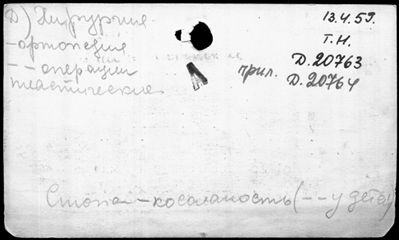 Д) Хирургия
13.4.59.
-ортопедия
Т.Н.
Д.20763
- - операции
прил. Д.20764
пластические
Стопа - косолапость (- - у детей)